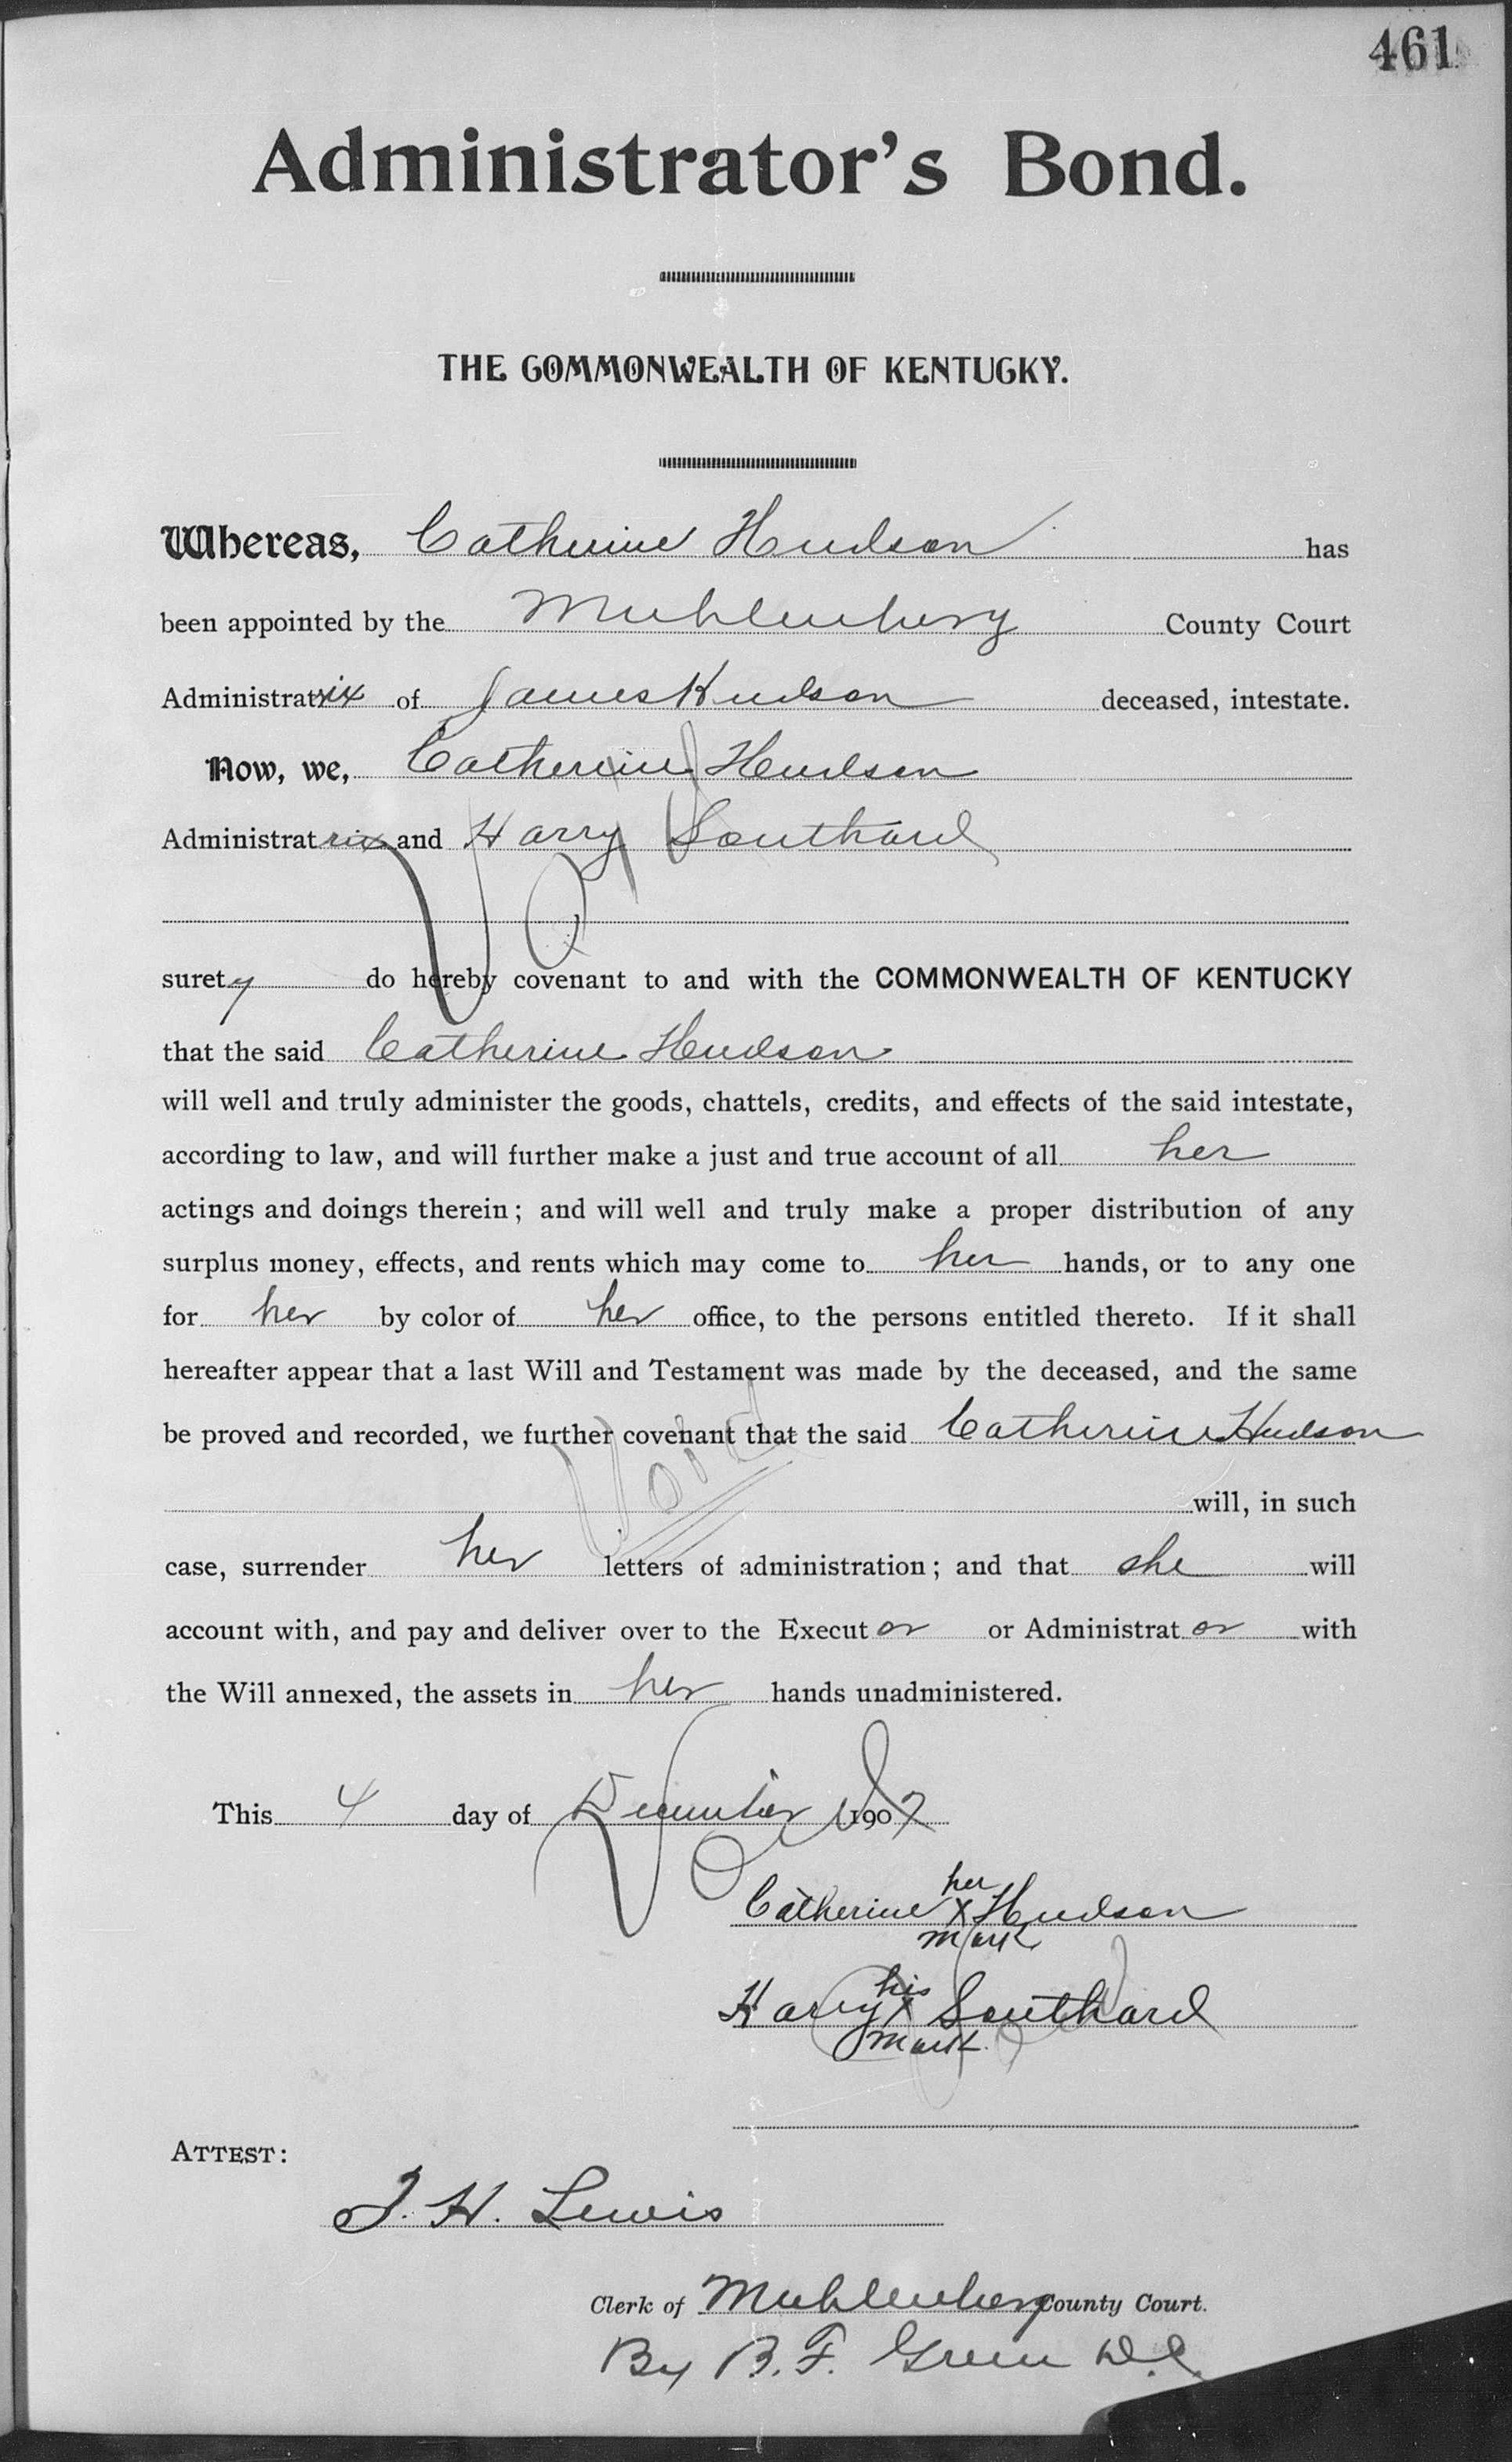 461
Administrator's Bond.
THE COMMONWEALTH OF KENTUCKY.
Whereas, Catherine Hudson has
been appointed by the Muhlenberg County Court
Administratrix of James Hudson deceased, intestate.
Now, we, Catherine Hudson
Administratrix and Harry Southard
Void
surety do hereby covenant to and with the COMMONWEALTH OF KENTUCKY
that the said Catherine Hudson
will well and truly administer the goods, chattels, credits, and effects of the said intestate,
according to law, and will further make a just and true account of all her
actings and doings therein; and will well and truly make a proper distribution of any
surplus money, effects, and rents which may come to her hands, or to any one
for her by color of her office, to the persons entitled thereto. If it shall
hereafter appear that a last Will and Testament was made by the deceased, and the same
be proved and recorded, we further covenant that the said Catherine Hudson
Void
will, in such
case, surrender her letters of administration; and that she will
account with, and pay and deliver over to the Executor or Administrator with
the Will annexed, the assets in her hands unadministered.
This 4 day of December 1907
Void
her
Catherine X Hudson
mark
his
Harry X Southard
mark
ATTEST:
J. H. Lewis
Clerk of Muhlenberg County Court.
By B. F. Green D.C.